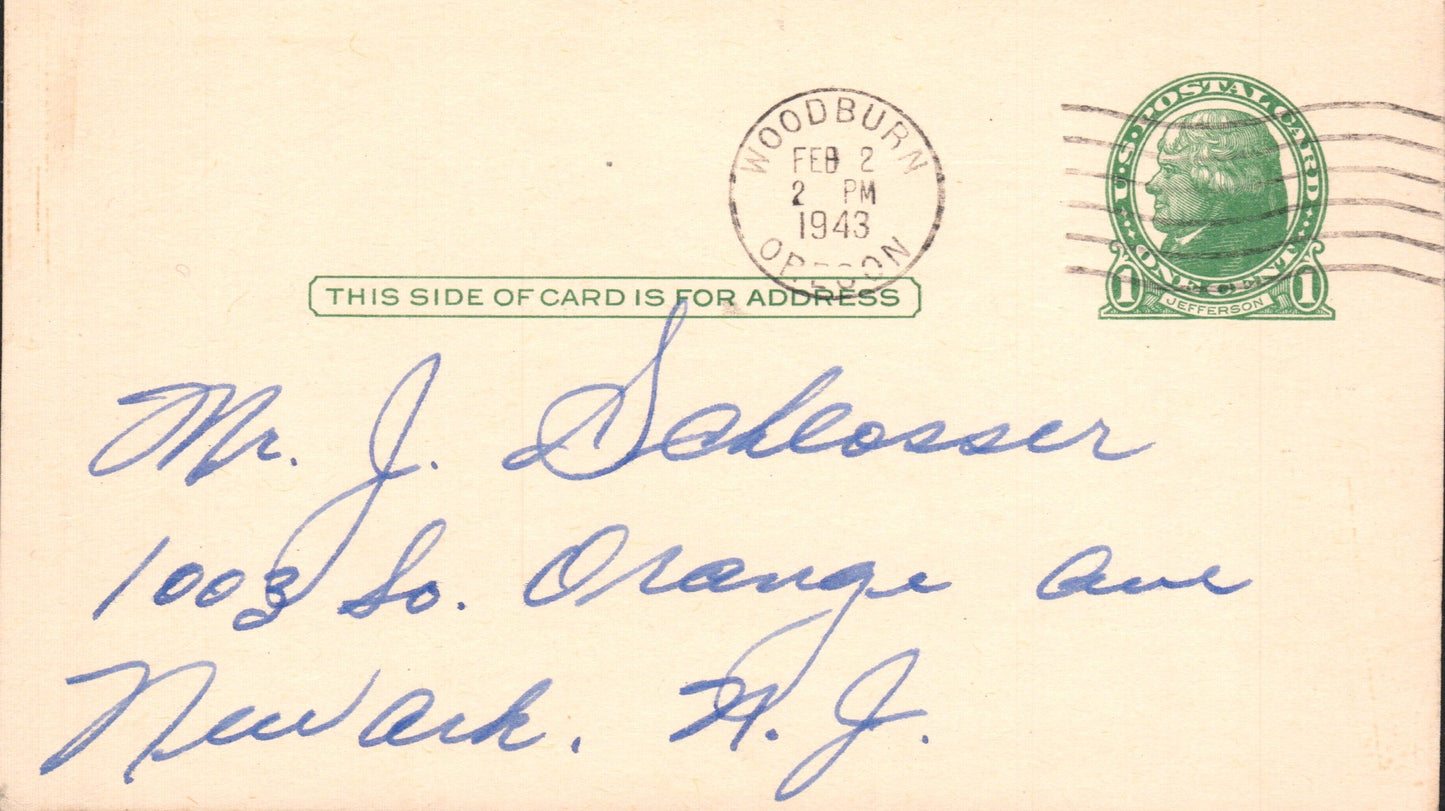 WOODBURN
FEB 2
2 PM
1943
OREGON
U.S. POSTAL CARD
ONE CENT
1 JEFFERSON 1
THIS SIDE OF CARD IS FOR ADDRESS
Mr. J. Schlosser
1003 So. Orange Ave
Newark. N. J.